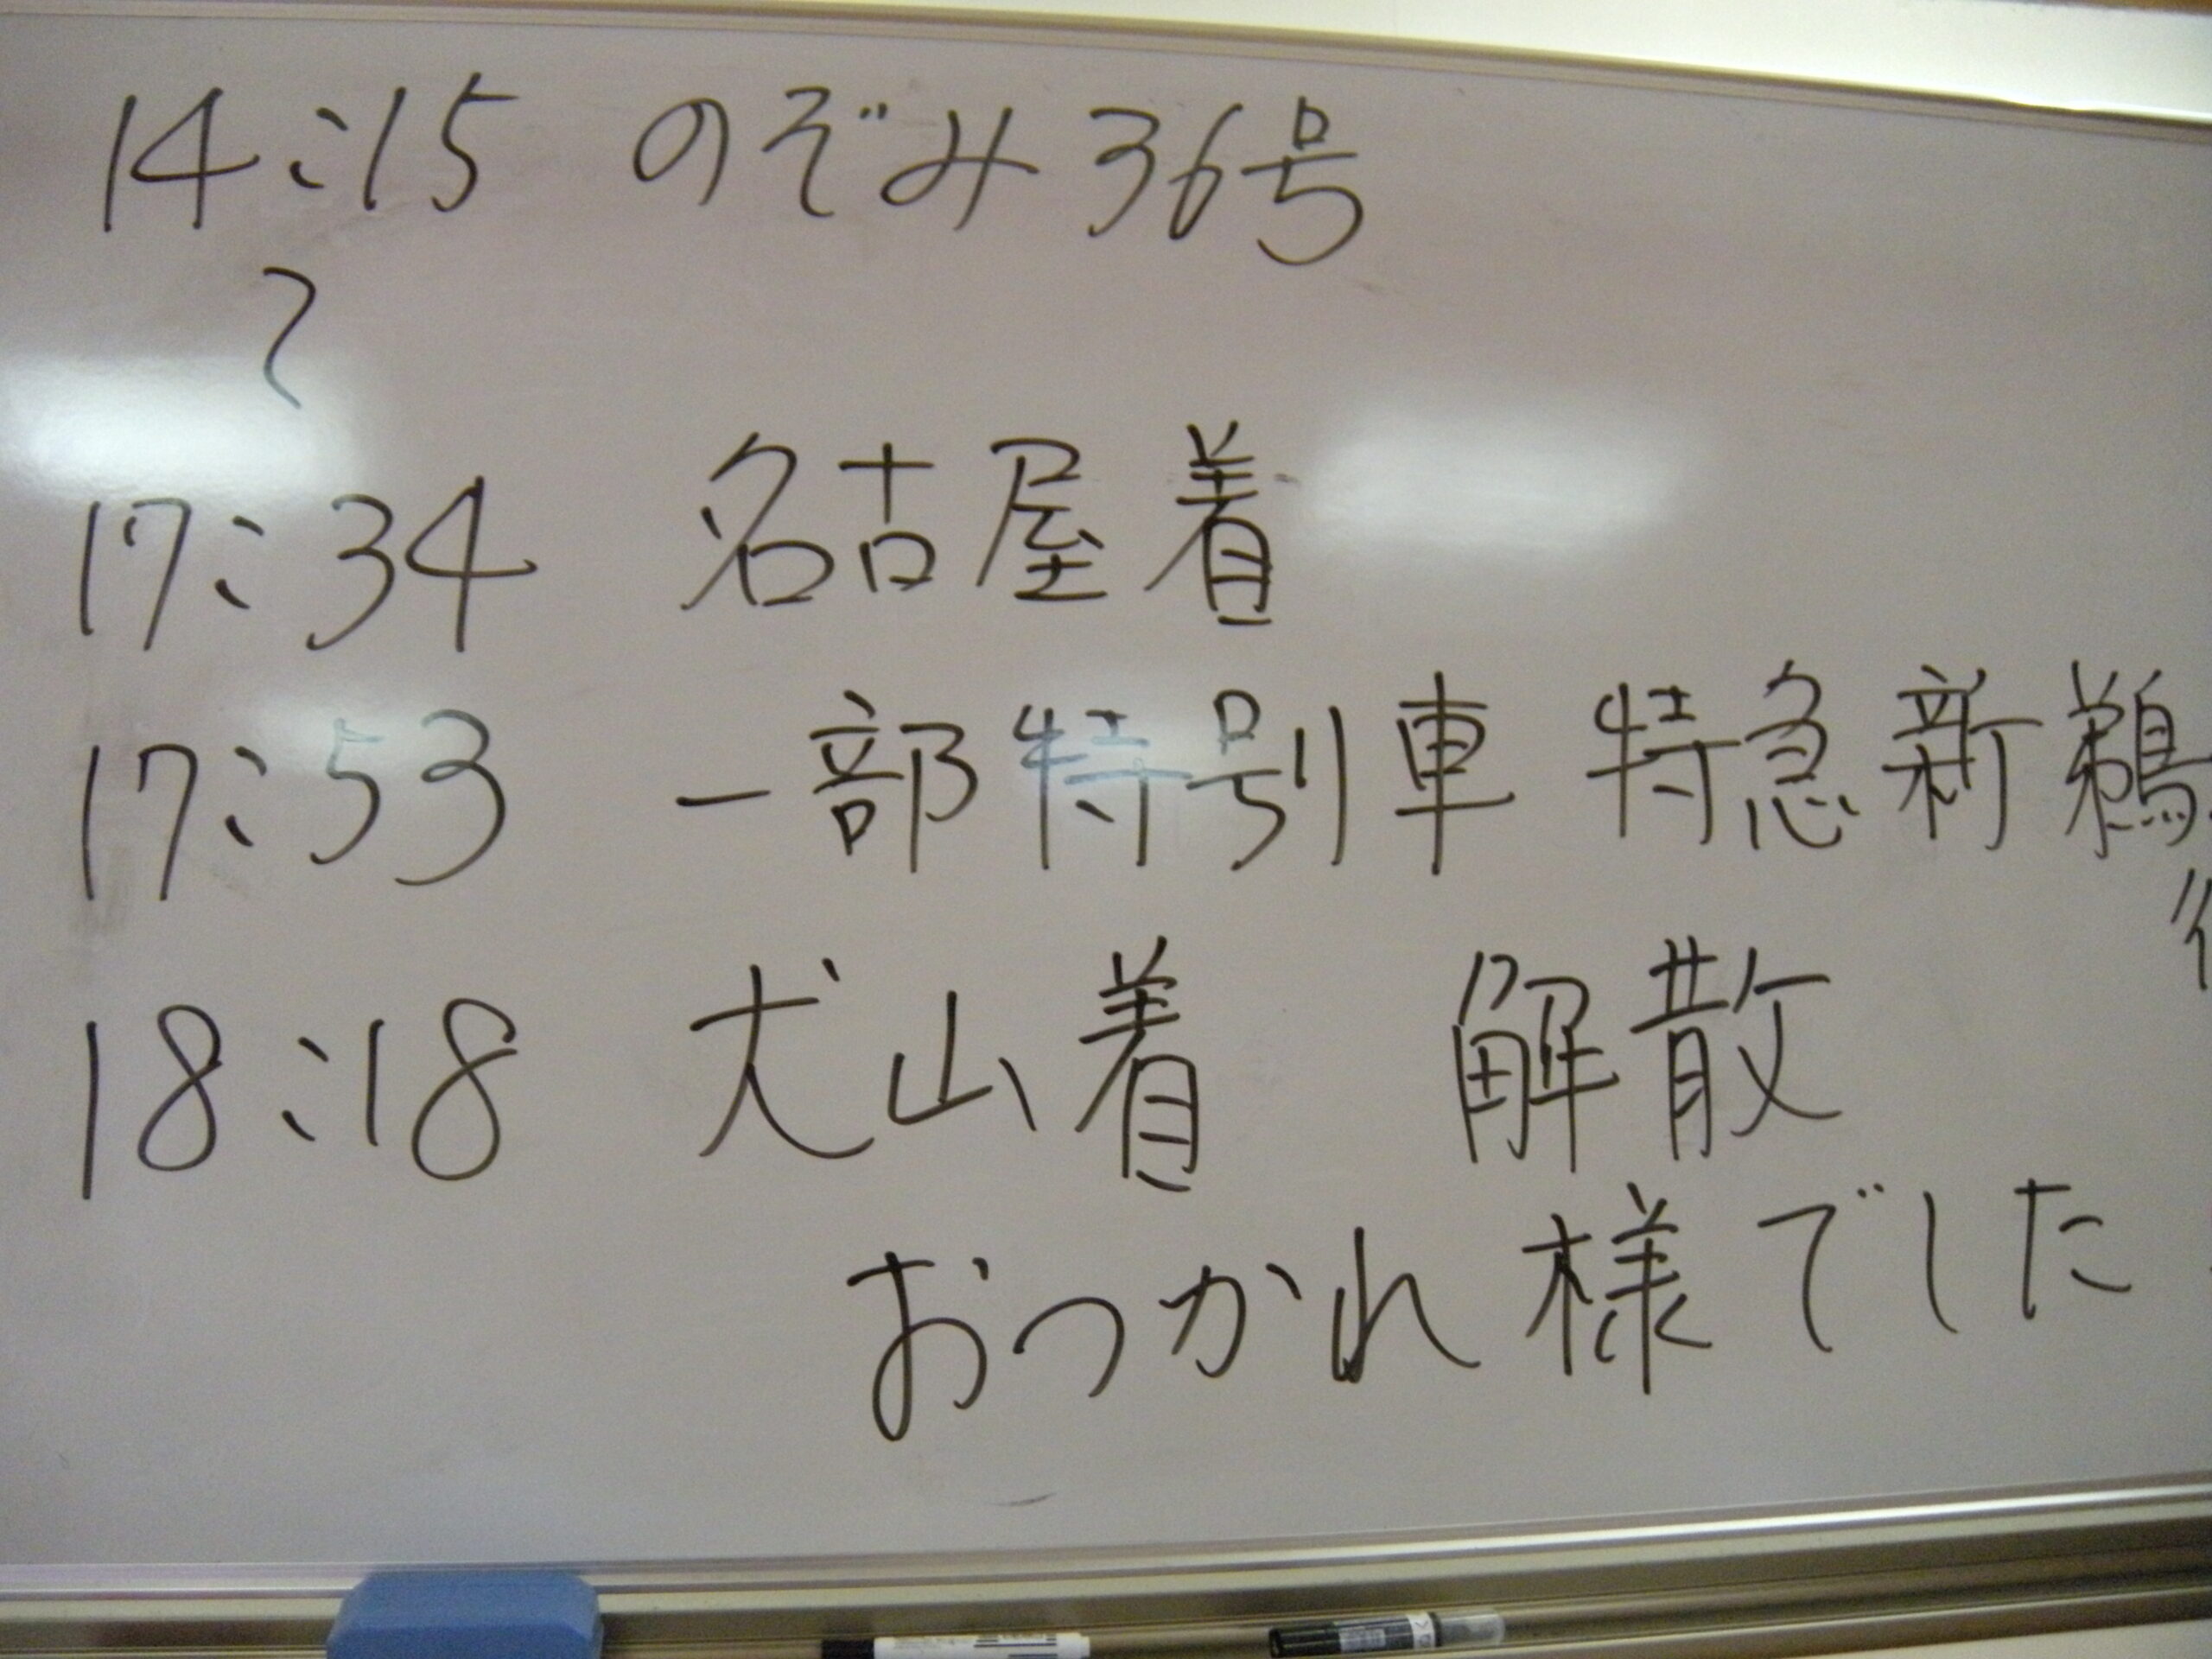 14:15 のぞみ36号
〜
17:34 名古屋着
17:53 一部特別車 特急新鵜
18:18 犬山着 解散
おつかれ様でした